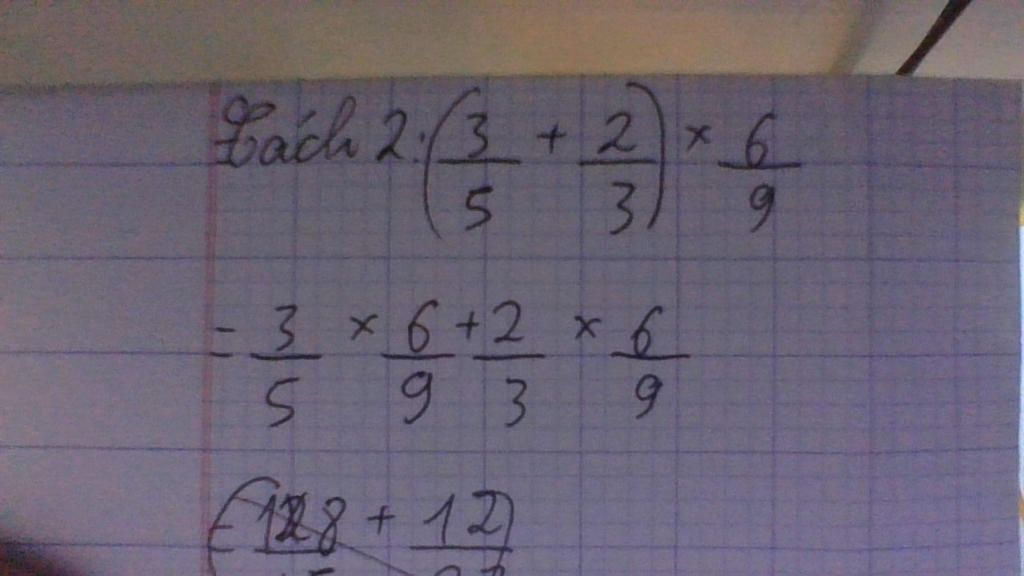 Cách 2: (3/5 + 2/3) × 6/9
= 3/5 × 6/9 + 2/3 × 6/9
= (18 + 12)